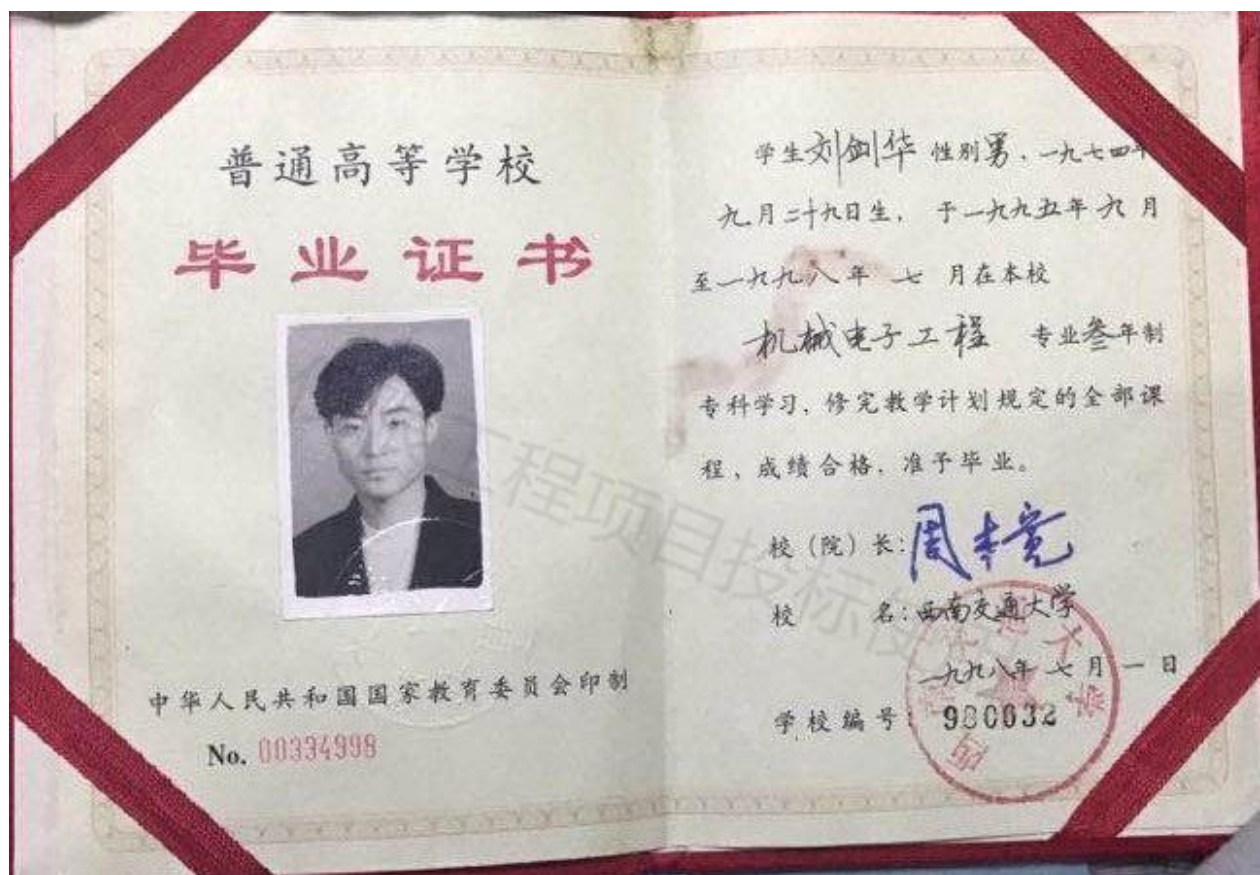 普通高等学校
毕业证书
中华人民共和国国家教育委员会印制
No. 00334998
学生刘剑华 性别男，一九七四年
九月二十九日生，于一九九五年九月
至一九九八年 七 月在本校
机械电子工程 专业叁年制
专科学习，修完教学计划规定的全部课
程，成绩合格，准予毕业。
校（院）长：周本宽
校 名：西南交通大学
一九九八年 七 月 一 日
学校编号：980032
工程项目投标使